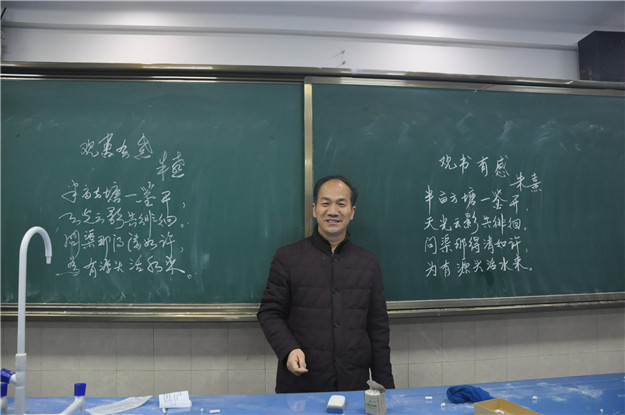 观書有感
朱熹
半亩方塘一鉴开，
天光云影共徘徊。
问渠那得清如许，
为有源头活水来。
观书有感
朱熹
半亩方塘一鉴开，
天光云影共徘徊。
问渠那得清如许，
为有源头活水来。